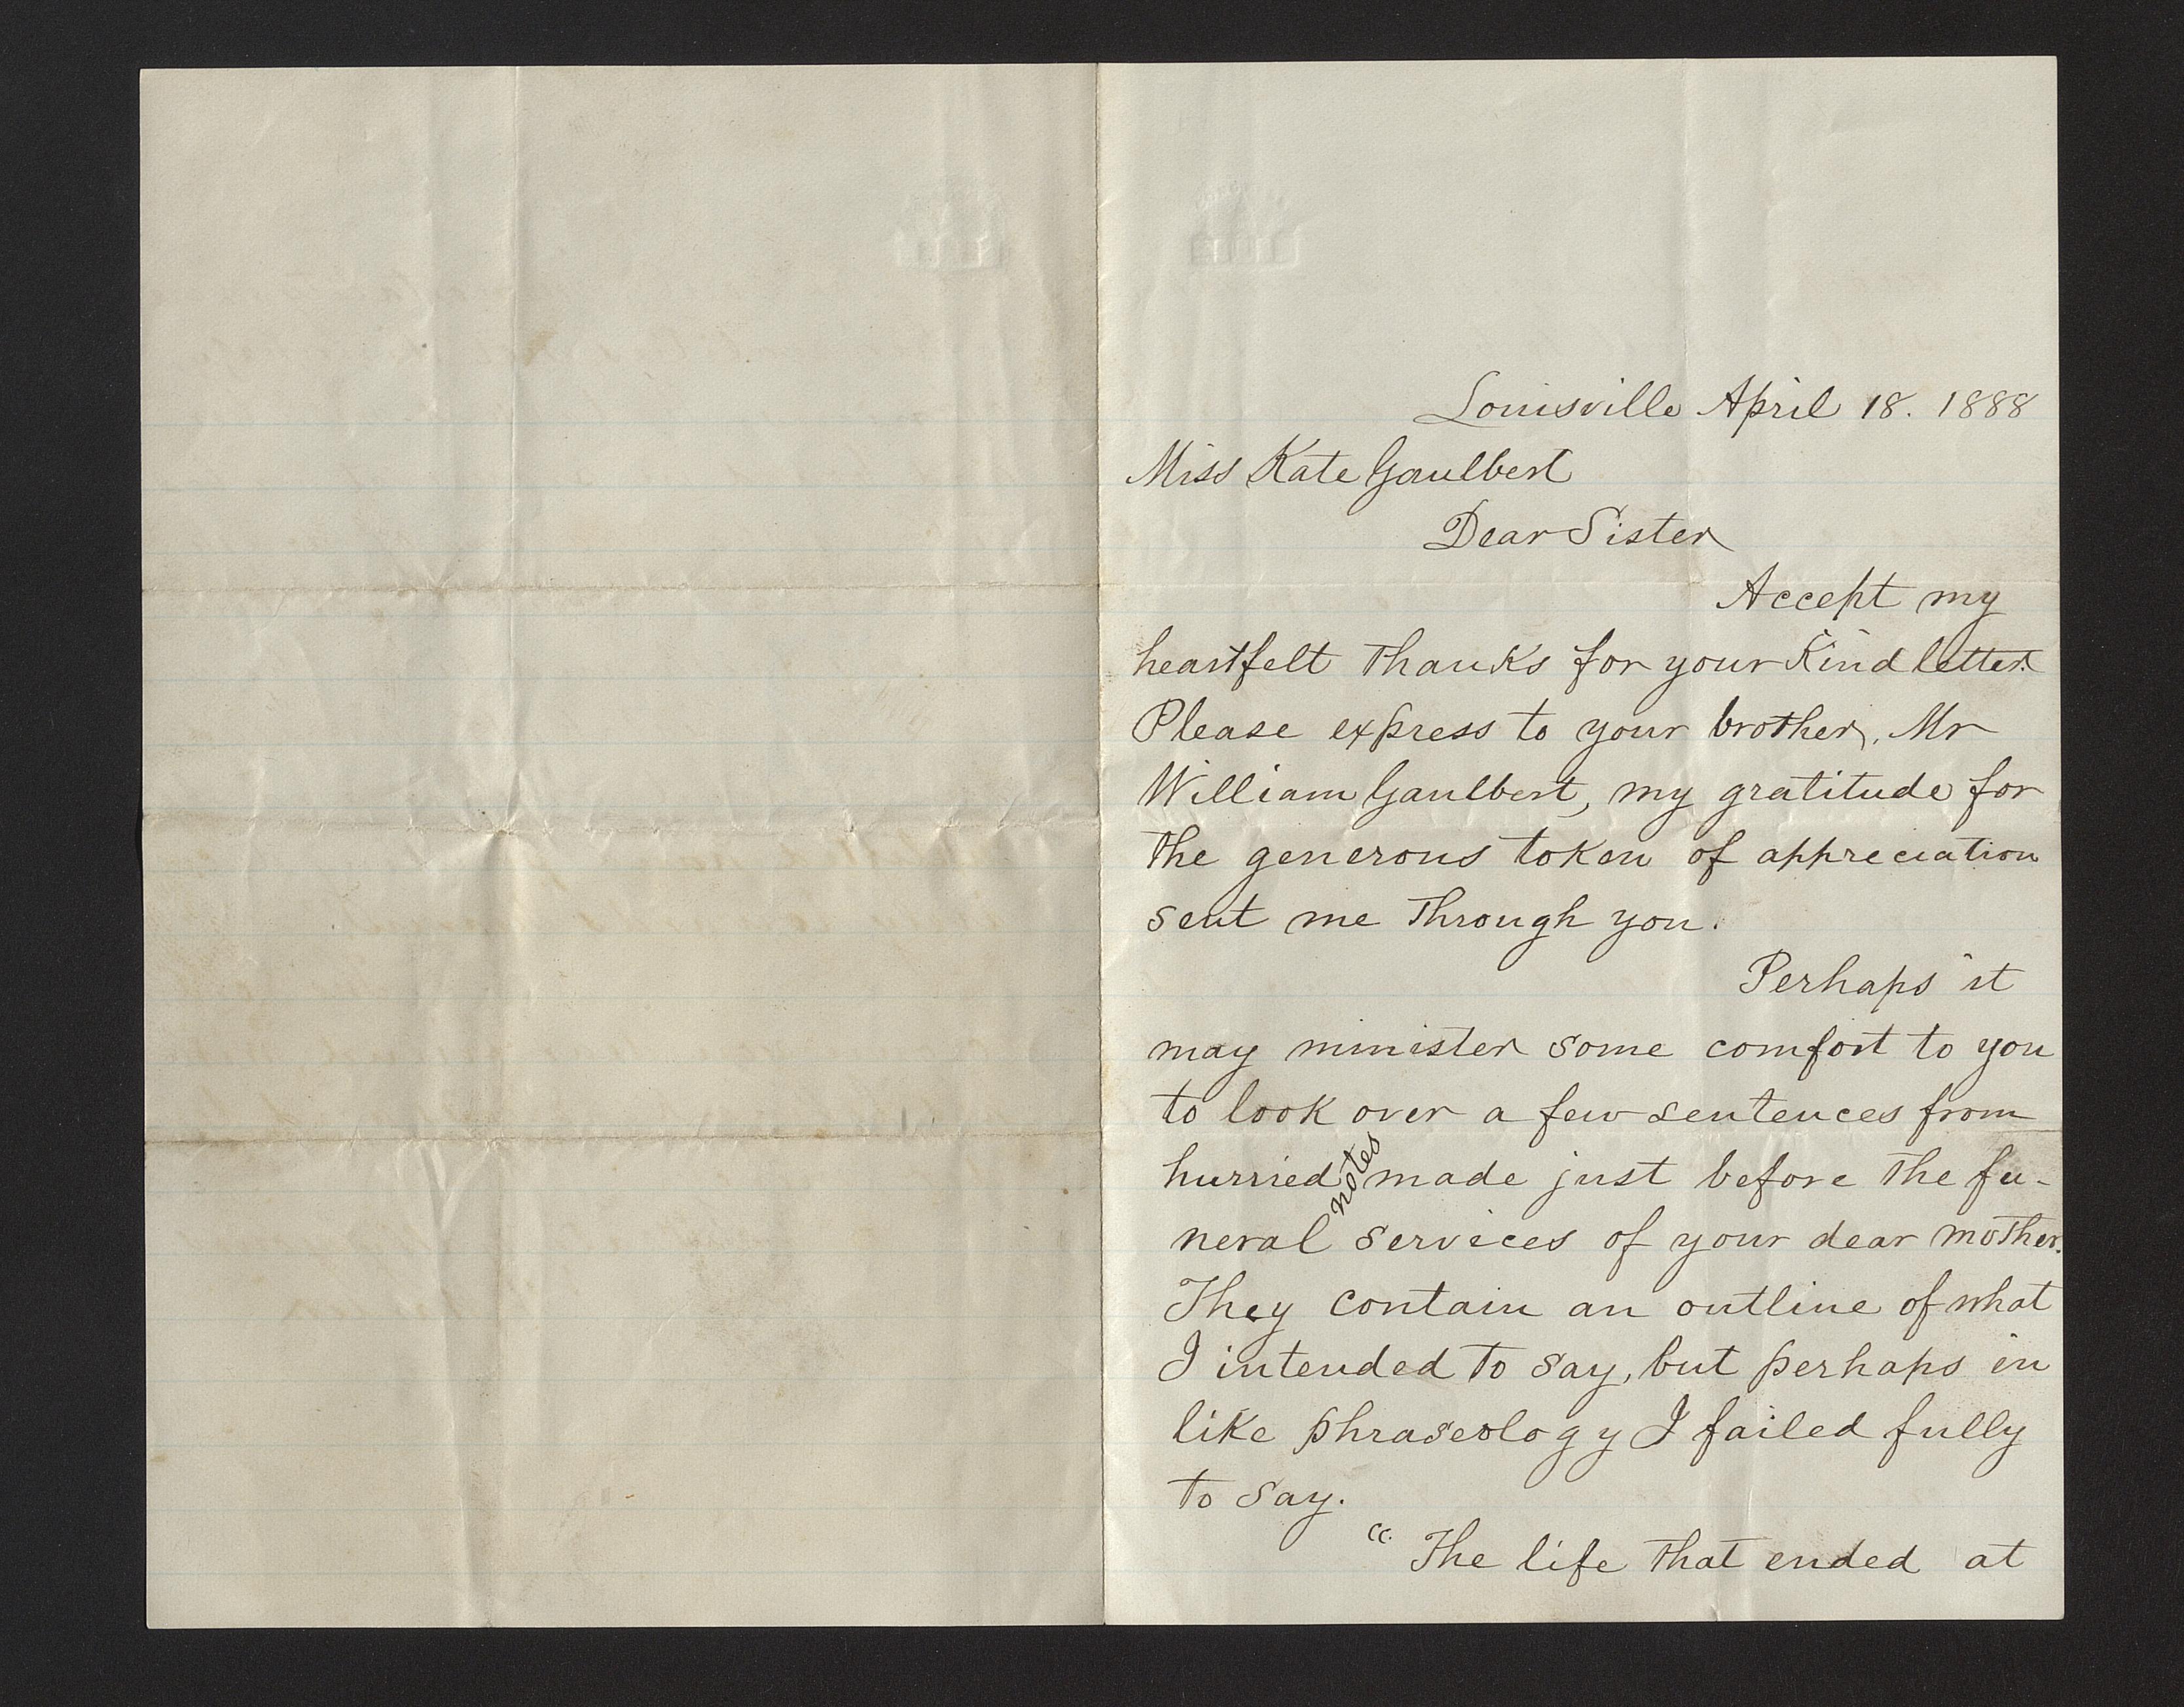 Louisville April 18. 1888
Miss Kate Gaulbert
Dear Sister
Accept my
heartfelt thanks for your kind letter.
Please express to your brother, Mr
William Gaulbert, my gratitude for
the generous token of appreciation
sent me through you.
Perhaps it
may minister some comfort to you
to look over a few sentences from
hurried notes made just before the fu-
neral services of your dear mother.
They contain an outline of what
I intended to say, but perhaps in
like phraseology I failed fully
to say.
"The life that ended at